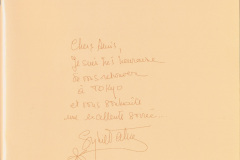 Chers Amis,
Je suis très heureuse
de vous retrouver
à TOKYO
et vous souhaite
une excellente soirée...